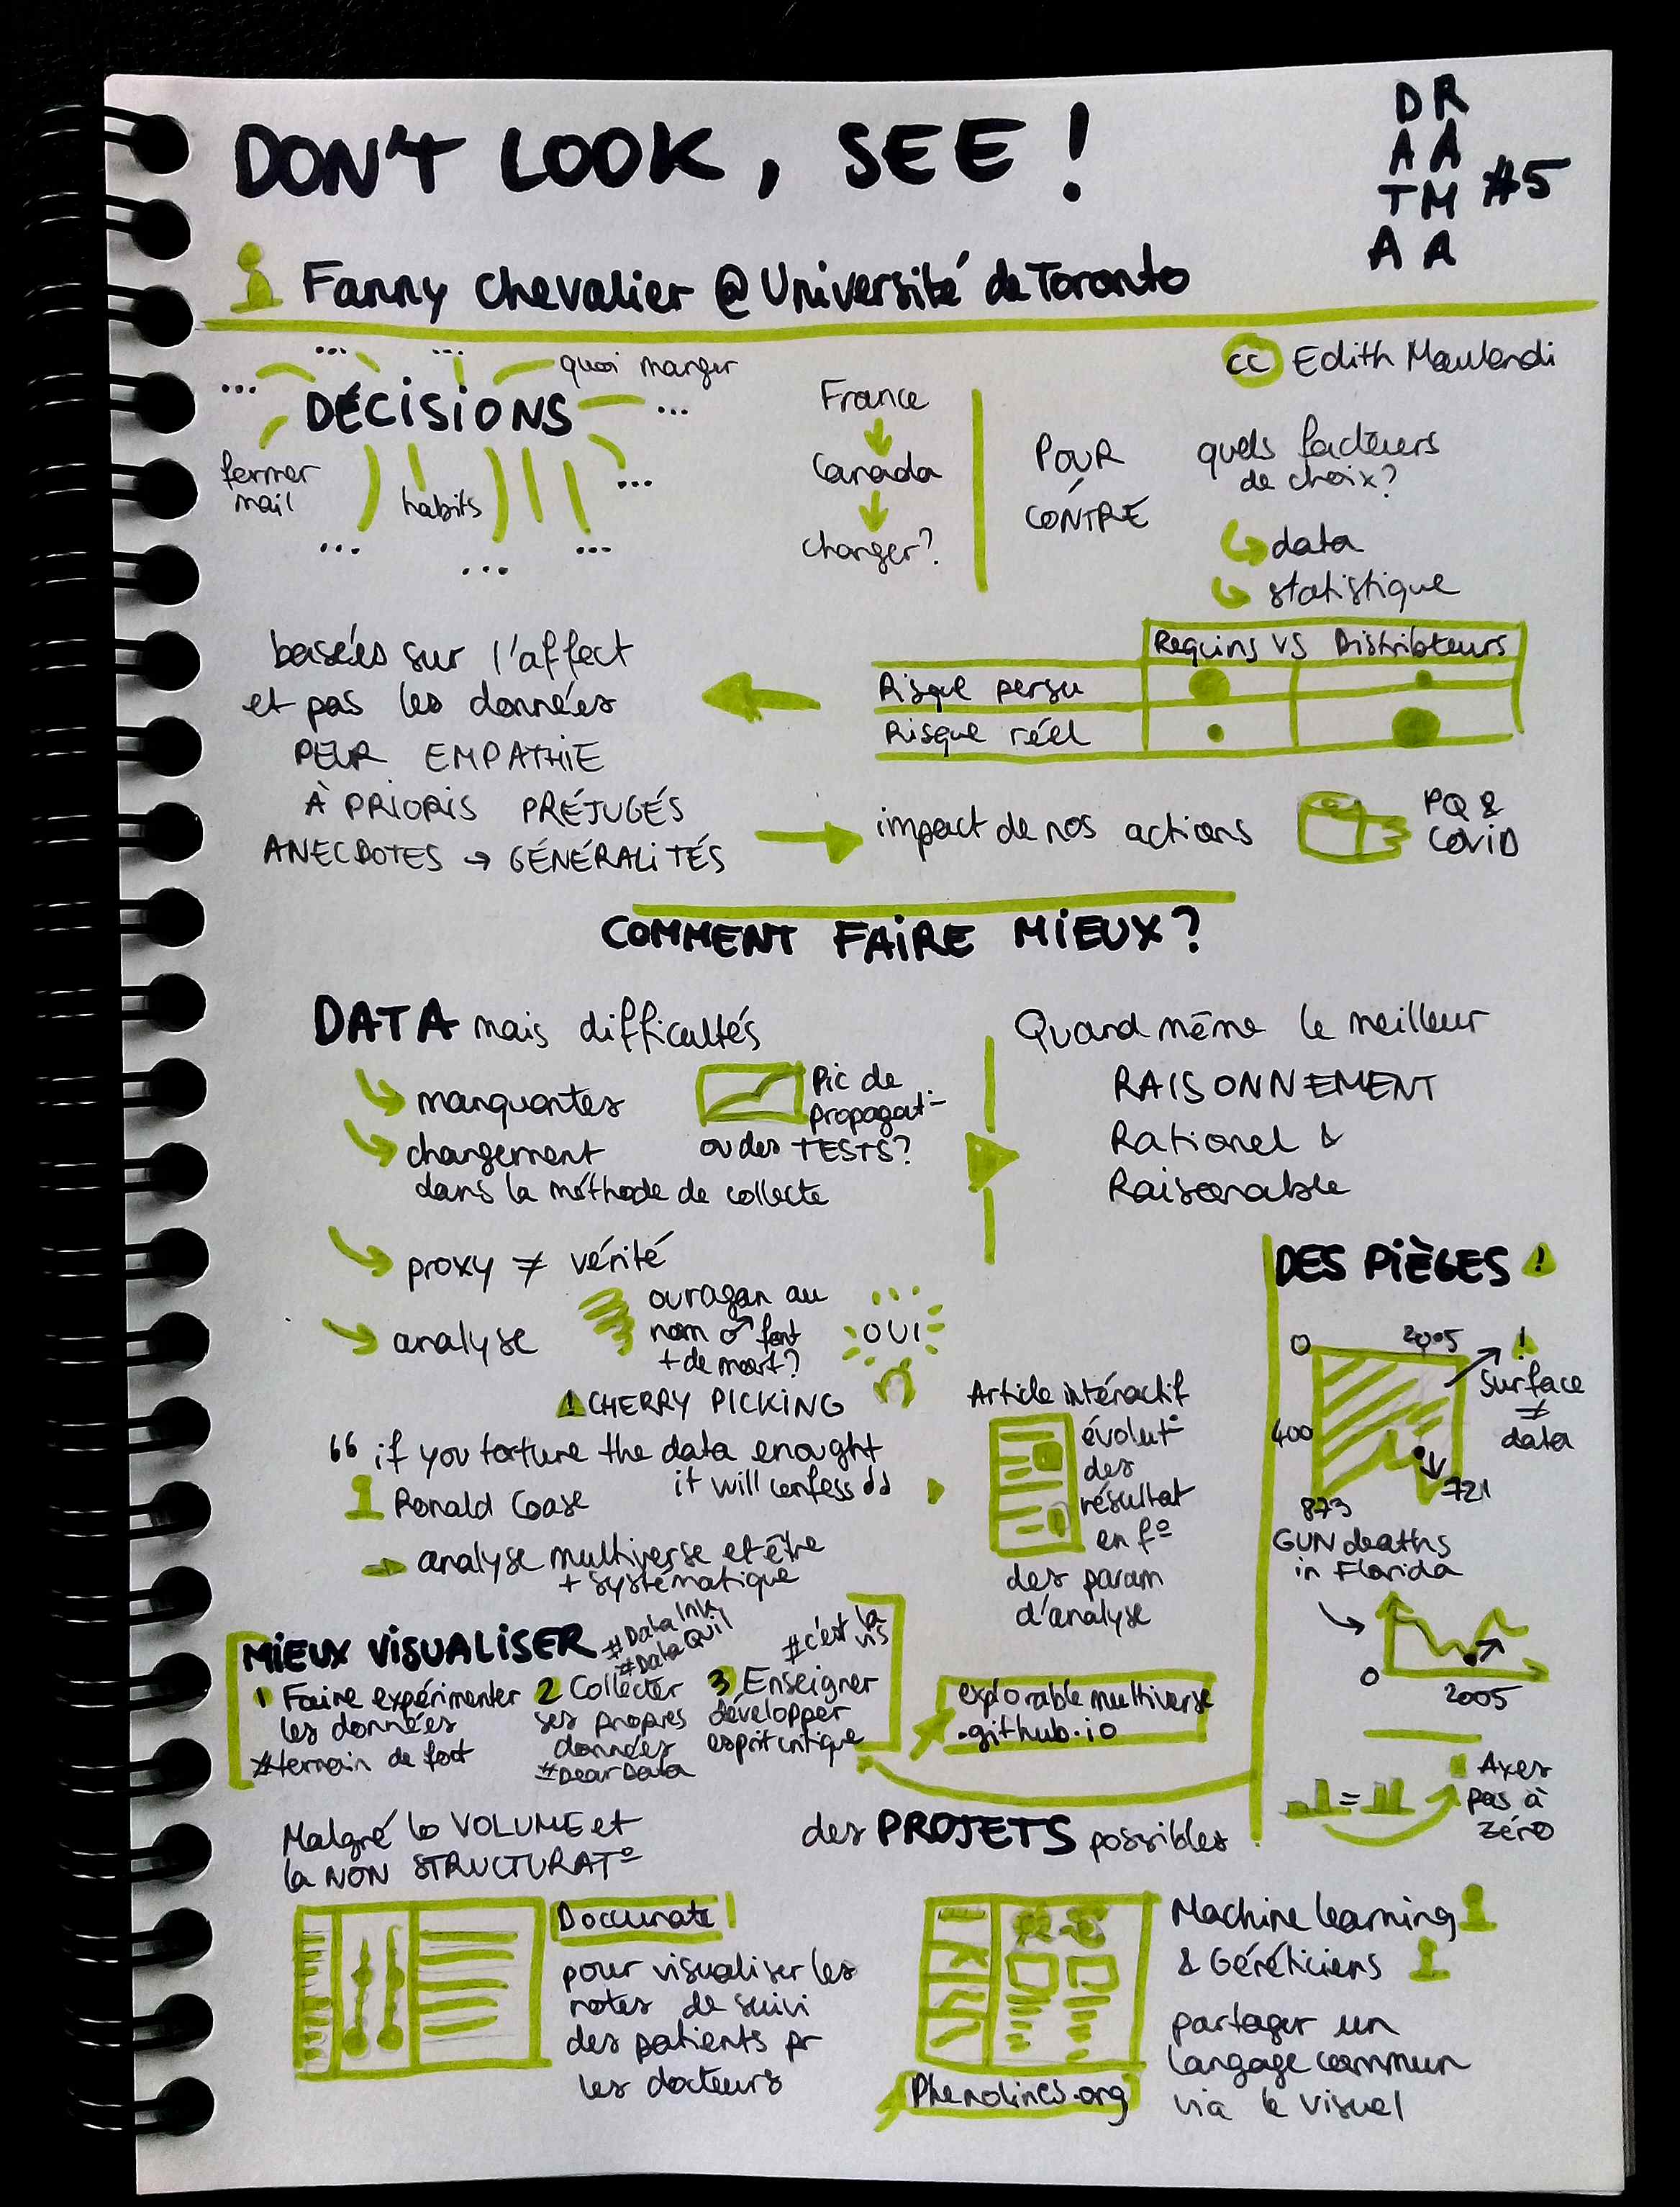 DON'T LOOK, SEE !
D R
A A
T M #5
A A
Fanny Chevalier @ Université de Toronto
cc Edith Maulandi
DÉCISIONS
...
...
...
quoi manger
...
...
fermer
mail
habits
...
...
...
France
Canada
changer?
POUR
CONTRE
quels facteurs
de choix?
data
statistique
Requins VS Distributeurs
Risque persu
Risque réel
basées sur l'affect
et pas les données
PEUR EMPATHIE
À PRIORIS PRÉJUGÉS
ANECDOTES → GÉNÉRALITÉS
impact de nos actions
PQ &
COVID
COMMENT FAIRE MIEUX?
DATA mais difficultés
manquantes
Pic de
propagat°
ou des TESTS?
changement
dans la méthode de collecte
proxy ≠ vérité
analyse
ouragan au
nom ♂ font
+ de mort?
OUI
! CHERRY PICKING
“ if you torture the data enought
it will confess ”
Ronald Coase
analyse multiverse et être
+ systématique
Quand même le meilleur
RAISONNEMENT
Rationel &
Raisonable
Article intéractif
évolut°
des
résultat
en f°
des param
d'analyse
explorable multiverse
.github.io
DES PIÈGES !
0
2005
!
Surface
≠
data
400
721
873
GUN deaths
in Florida
0
2005
=
Axes
pas à
zéro
MIEUX VISUALISER
#DataInk
#DataQuil
#c'est la
vis
1 Faire expérimenter
les données
#terrain de foot
2 Collecter
ses propres
données
#DearData
3 Enseigner
développer
esprit critique
des PROJETS possibles
Malgré le VOLUME et
la NON STRUCTURAT°
Doccurate
pour visualiser les
notes de suivi
des patients pr
les docteurs
Phenolines.org
Machine learning
& Généticiens
partager un
langage commun
via le visuel